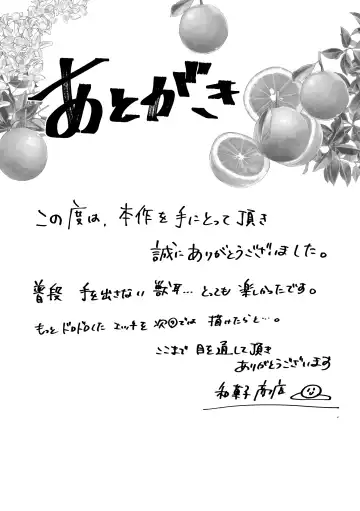 あとがき
この度は、本作を手にとって頂き
誠にありがとうございました。
普段 手を出さない 獣耳… とっても 楽しかったです。
もっとドロドロした エッチを 次回では 描けたらと…。
ここまで 目を通して頂き
ありがとうございます
和菓子商店